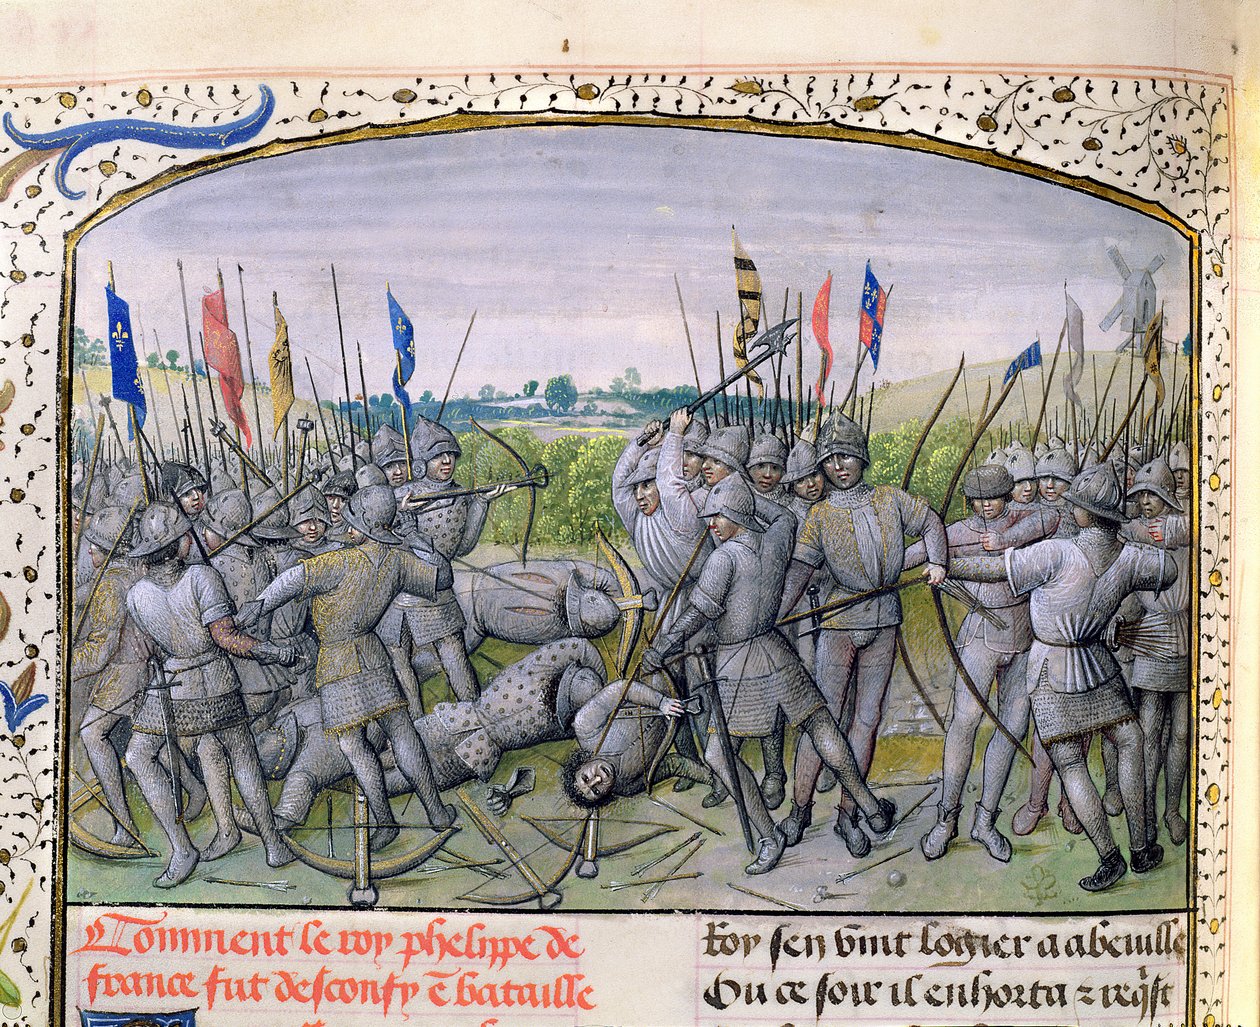 Comment le roy phelippe de
france fut desconfy e᷃ bataille
Roy sen vint logier a abeuille
Ou ce soir il enhorta ⁊ reqͥst